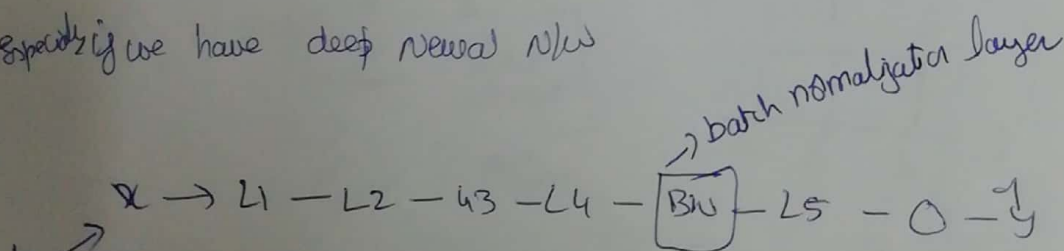 Especially if we have deep Neural N/w
→ batch normalization layer
x → L1 — L2 — L3 — L4 — BN — L5 — O — ŷ